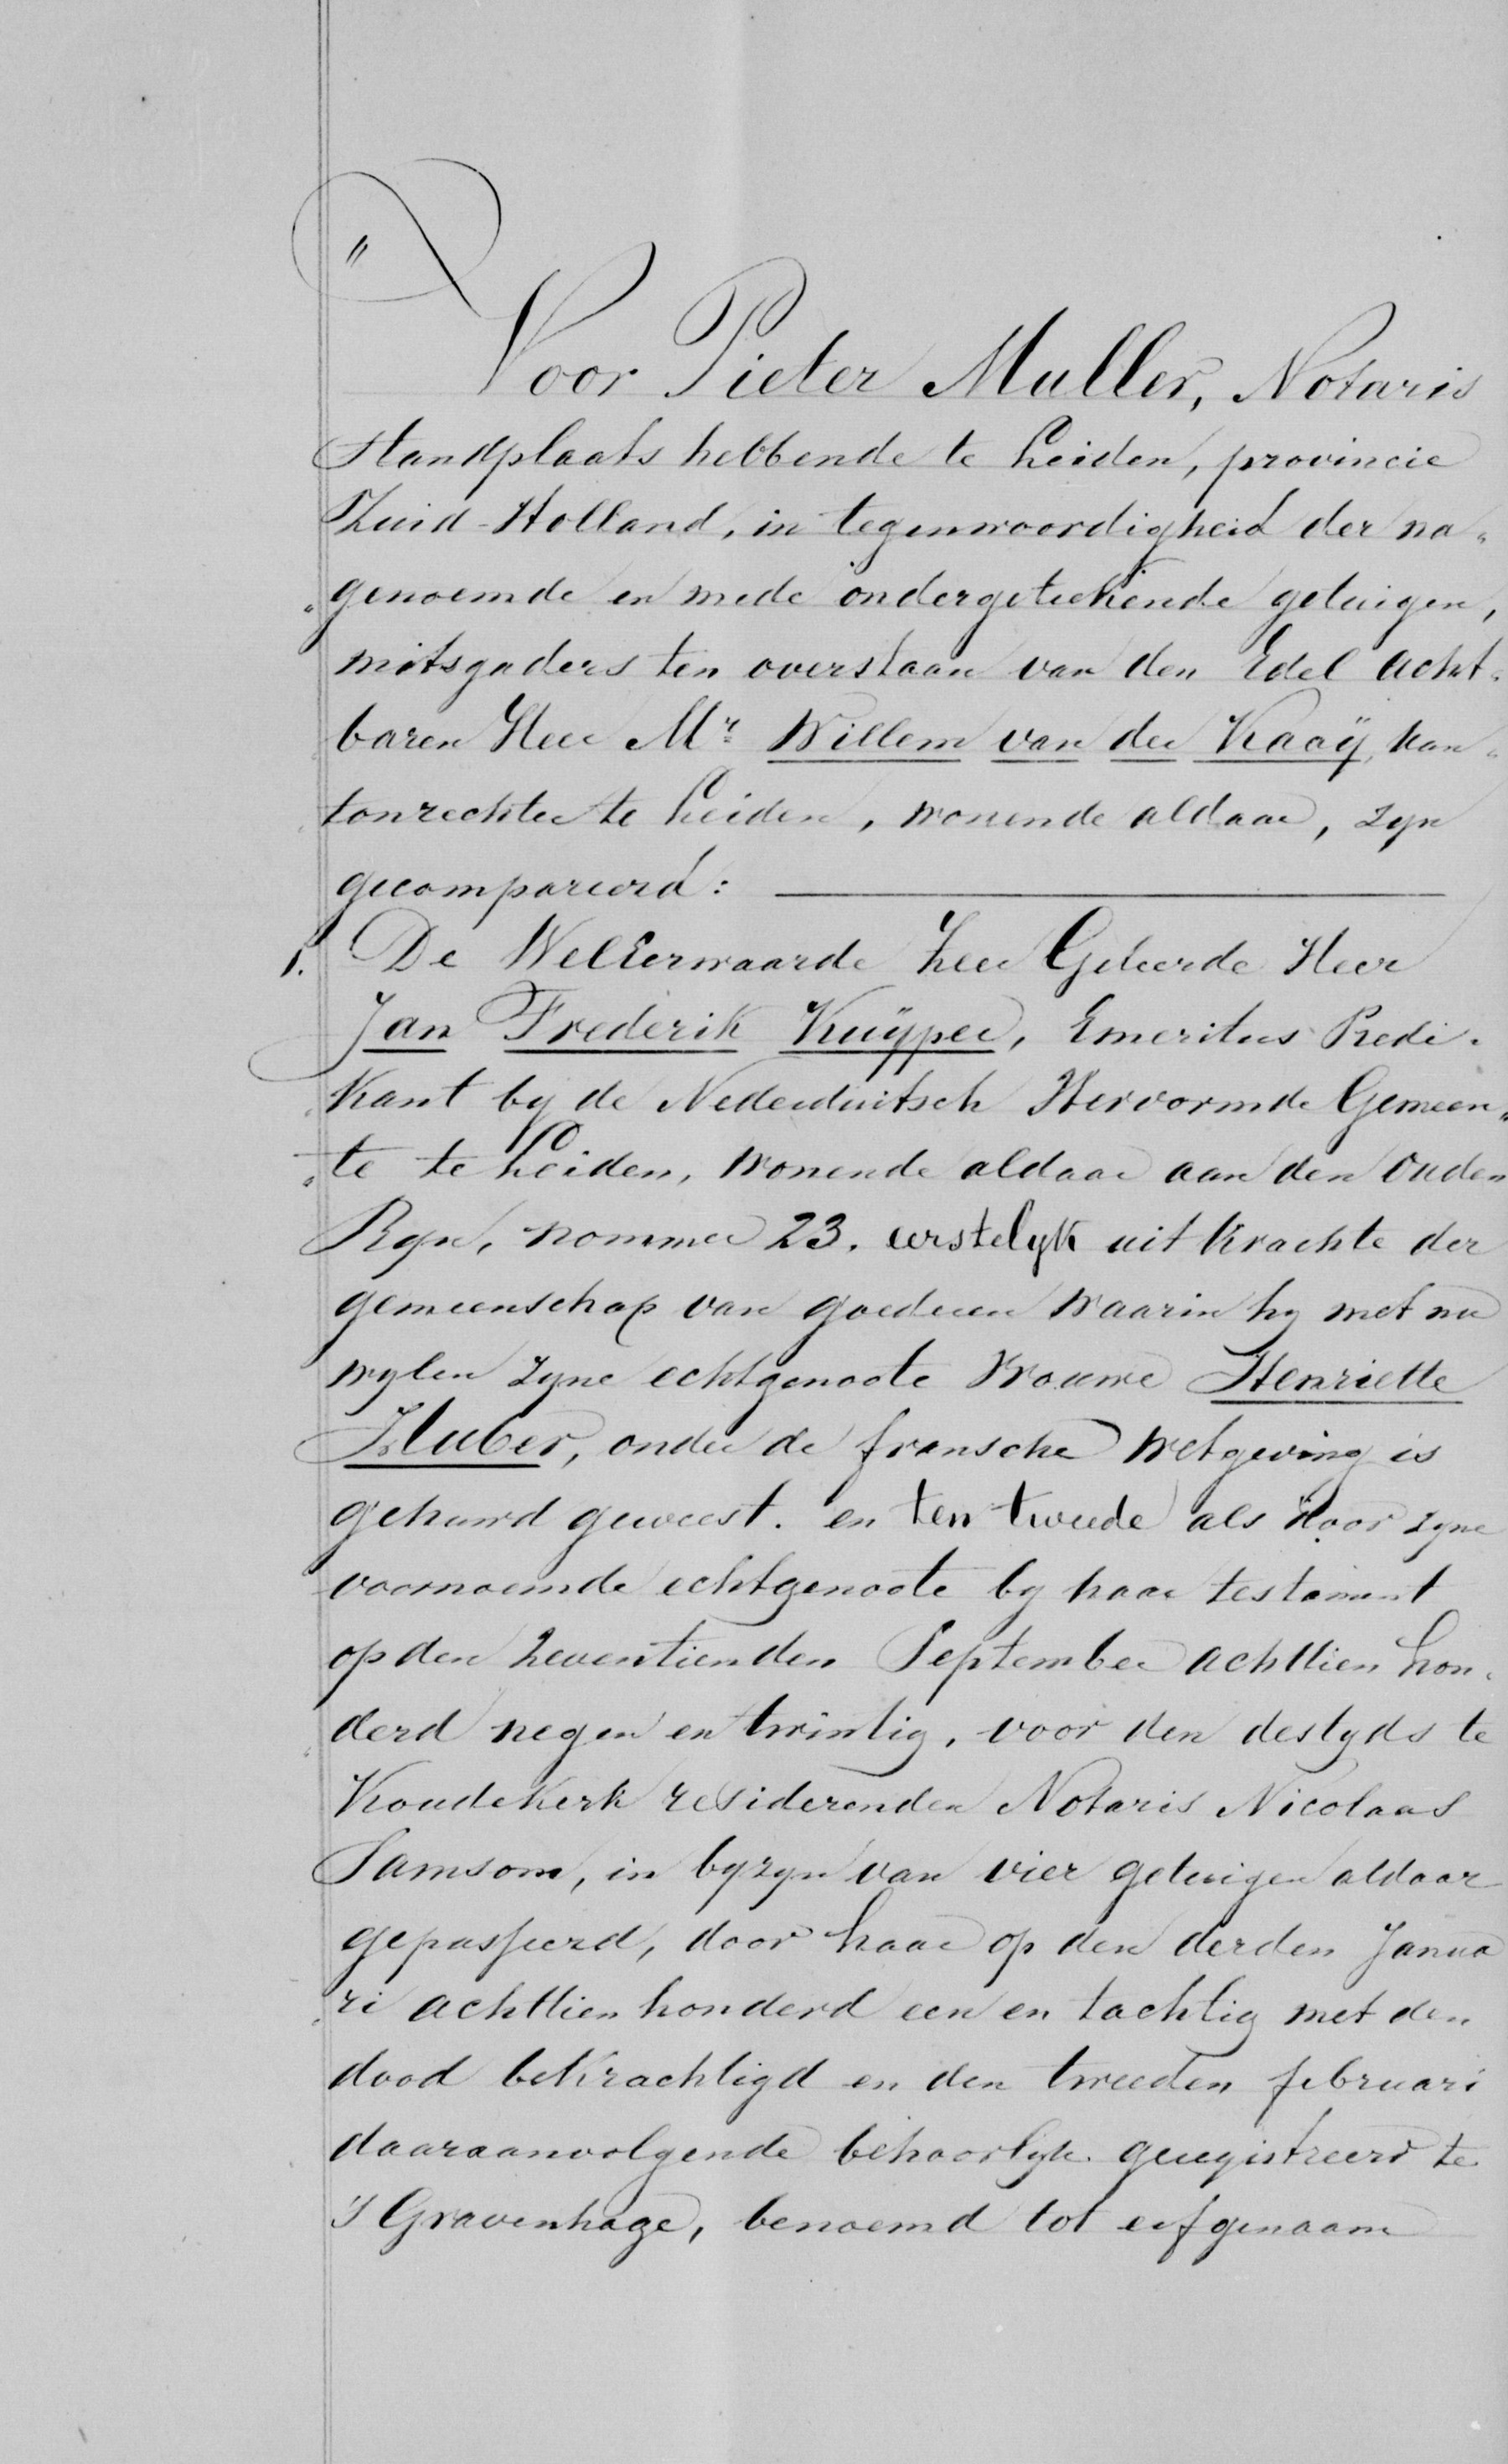 Voor Pieter Muller, Notaris
Standplaats hebbende te Leiden, provincie
Zuid-Holland, in tegenwoordigheid der na„
„genoemde en mede ondergeteekende getuigen,
mitsgaders ten overstaan van den Edel Acht„
baren Heer Mr. Willem van der Kaaÿ, kan„
„tonrechter te Leiden, wonende aldaar, zyn
gecompareerd:
1. De WelEerwaarde Zeer Geleerde Heer
Jan Frederik Kuÿper, Emeritus Predi„
„kant by de Nederduitsch Hervormde Gemeen„
„te te Leiden, wonende aldaar aan den Ouden
Ryn, nommer 23. eerstelyk uit krachte der
gemeenschap van goederen waarin hy met nu
wylen zyne echtgenoote Vrouwe Henriette
Huber, onder de fransche wetgeving is
gehuwd geweest. en ten tweede als door zyne
voornoemde echtgenoote by haar testament
op den Zeventienden September achttien hon„
„derd negen en twintig, voor den destyds te
Koudekerk residerenden Notaris Nicolaas
Samsom, in byzyn van vier getuigen aldaar
gepasseerd, door haar op den derden Janua
„ri achttien honderd een en tachtig met den
dood bekrachtigd en den tweeden februari
daaraanvolgende behoorlyk geregistreerd te
's Gravenhage, benoemd tot erfgenaam